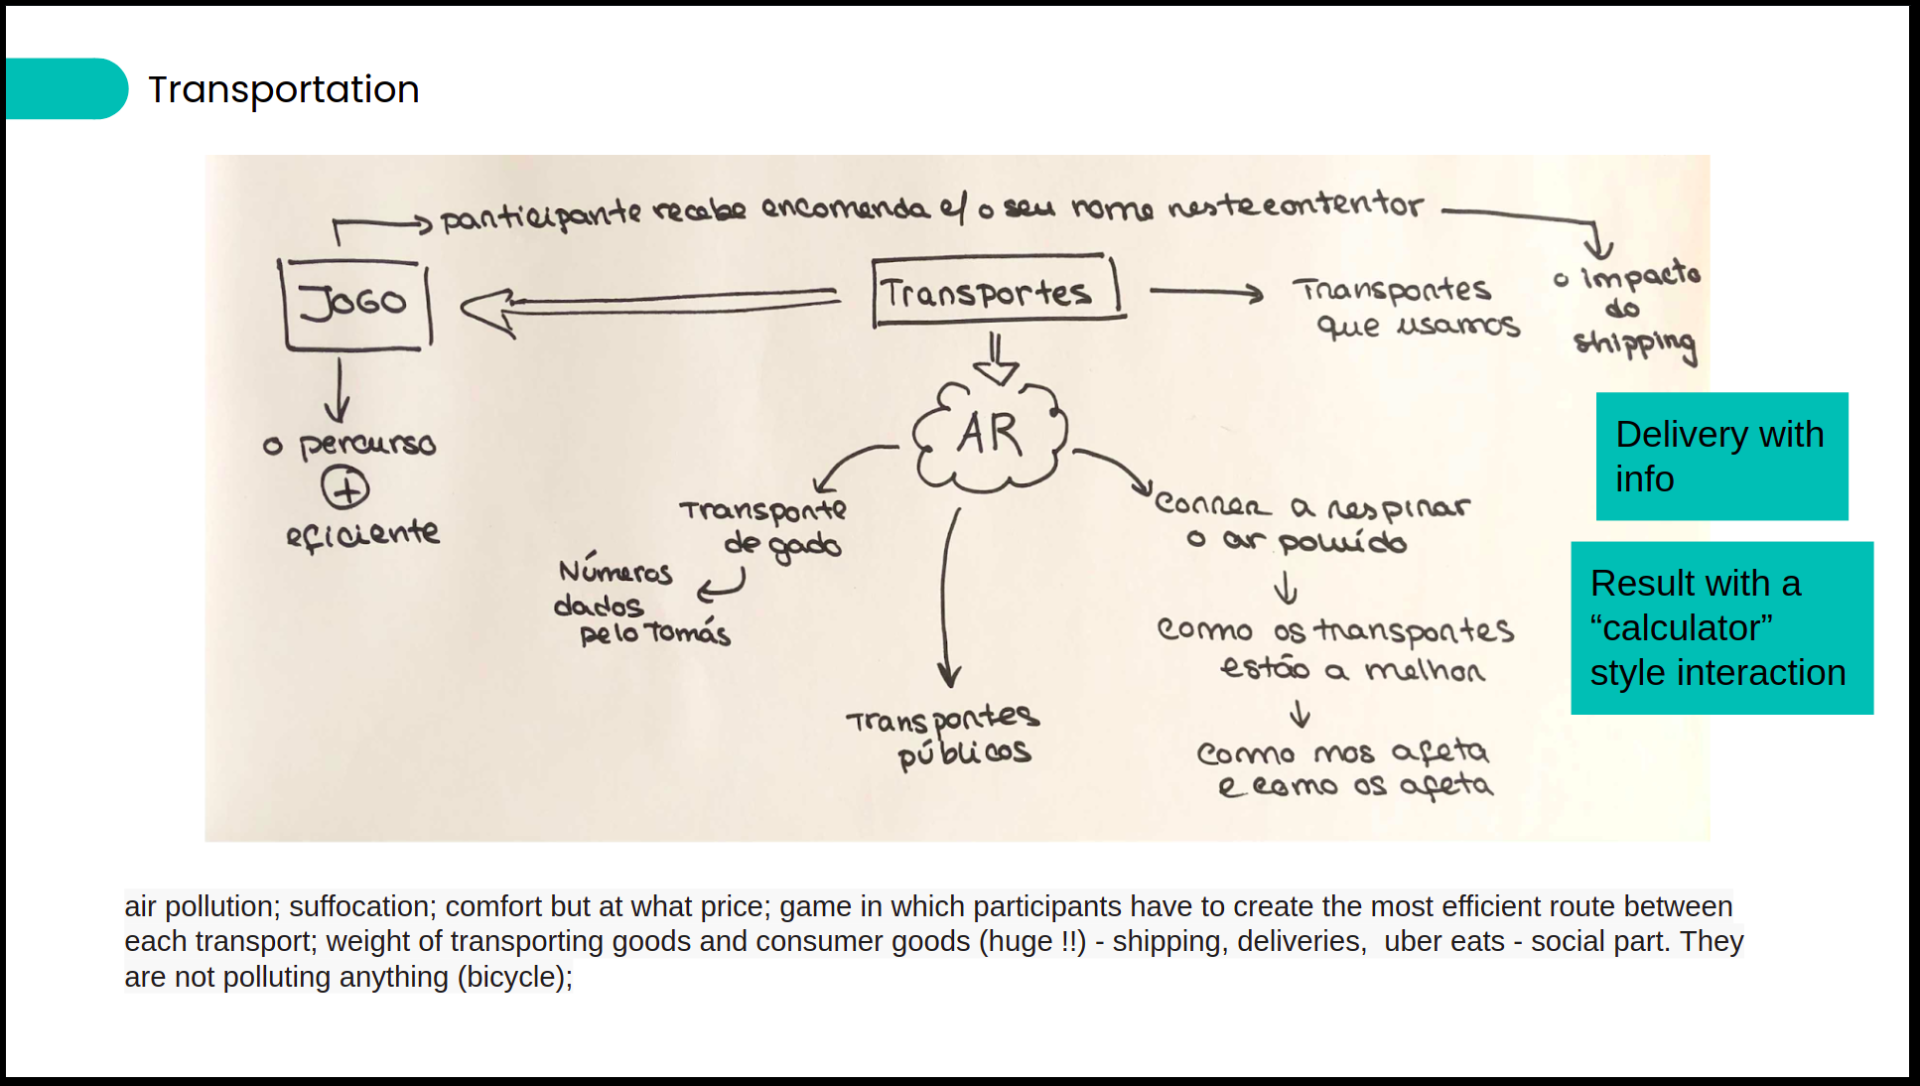 Transportation
participante recebe encomenda c/ o seu nome neste contentor
JOGO
Transportes
Transportes
que usamos
o impacto
do
shipping
o percurso
+
eficiente
AR
Transporte
de gado
Números
dados
pelo Tomás
Transportes
públicos
Correr a respirar
o ar poluído
como os transportes
estão a melhor
como nos afeta
e como os afeta
Delivery with
info
Result with a
“calculator”
style interaction
air pollution; suffocation; comfort but at what price; game in which participants have to create the most efficient route between
each transport; weight of transporting goods and consumer goods (huge !!) - shipping, deliveries,  uber eats - social part. They
are not polluting anything (bicycle);